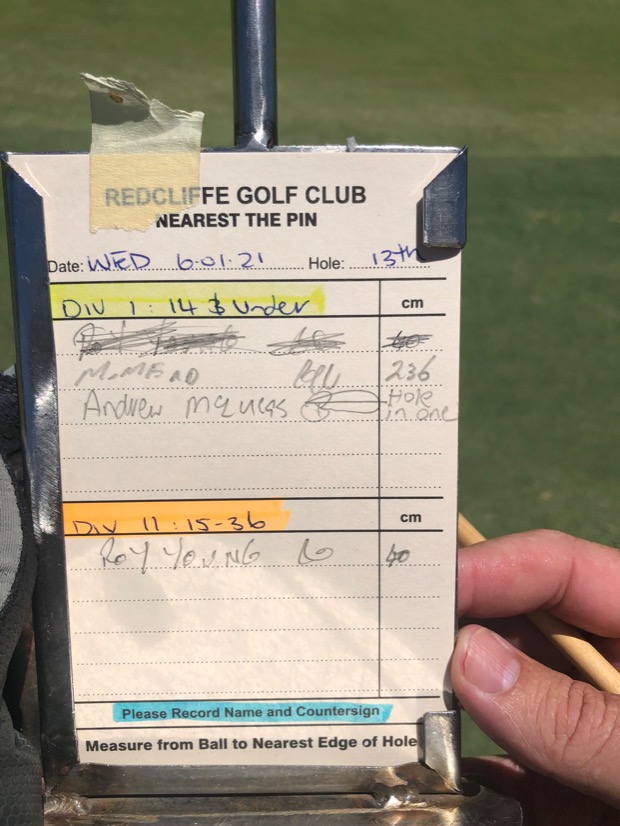 REDCLIFFE GOLF CLUB
NEAREST THE PIN
Date: WED 6.01.21 Hole: 13th
DIV 1: 14 & Under cm
236
Andrew Hole
in one
DIV 11: 15-36 cm
ROY YOUNG 40
Please Record Name and Countersign
Measure from Ball to Nearest Edge of Hole